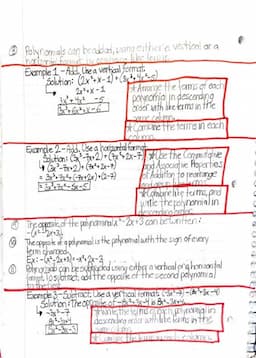 ② Polynomials can be added, using either a vertical or a
horizontal format
Example 1 - Add. Use a vertical format.
Solution: (2x²+x-1)+(3x³+4x²-5)
2x²+x-1
3x³+4x² -5
3x³+6x²+x-6
*Arrange the terms of each
polynomial in descending
order with like terms in the
same column.
*Combine the terms in each
column.
Example 2 - Add. Use a horizontal format.
Solution: (3x³-7x+2)+(7x²+2x-7)
→ (3x³-7x+2)+(7x²+2x-7)
= 3x³+7x²+(-7x+2x)+(2-7)
= 3x³+7x²-5x-5
*Use the Commutative
and Associative Properties
of Addition to rearrange
*Combine like terms, and
write the polynomial in
descending order.
The opposite of the polynomial x²-2x+3 can be written:
-(x²-2x+3)
The opposite of a polynomial is the polynomial with the sign of every
term changed.
Ex: -(x²-2x+3) = -x²+2x-3
Polynomials can be subtracted using either a vertical or a horizontal
format. To subtract, add the opposite of the second polynomial
to the first.
Example 3 - Subtract. Use a vertical format.
Solution: The opposite of
*Write the terms of each polynomial in
descending order with like terms in the
*Combine the terms in each column.